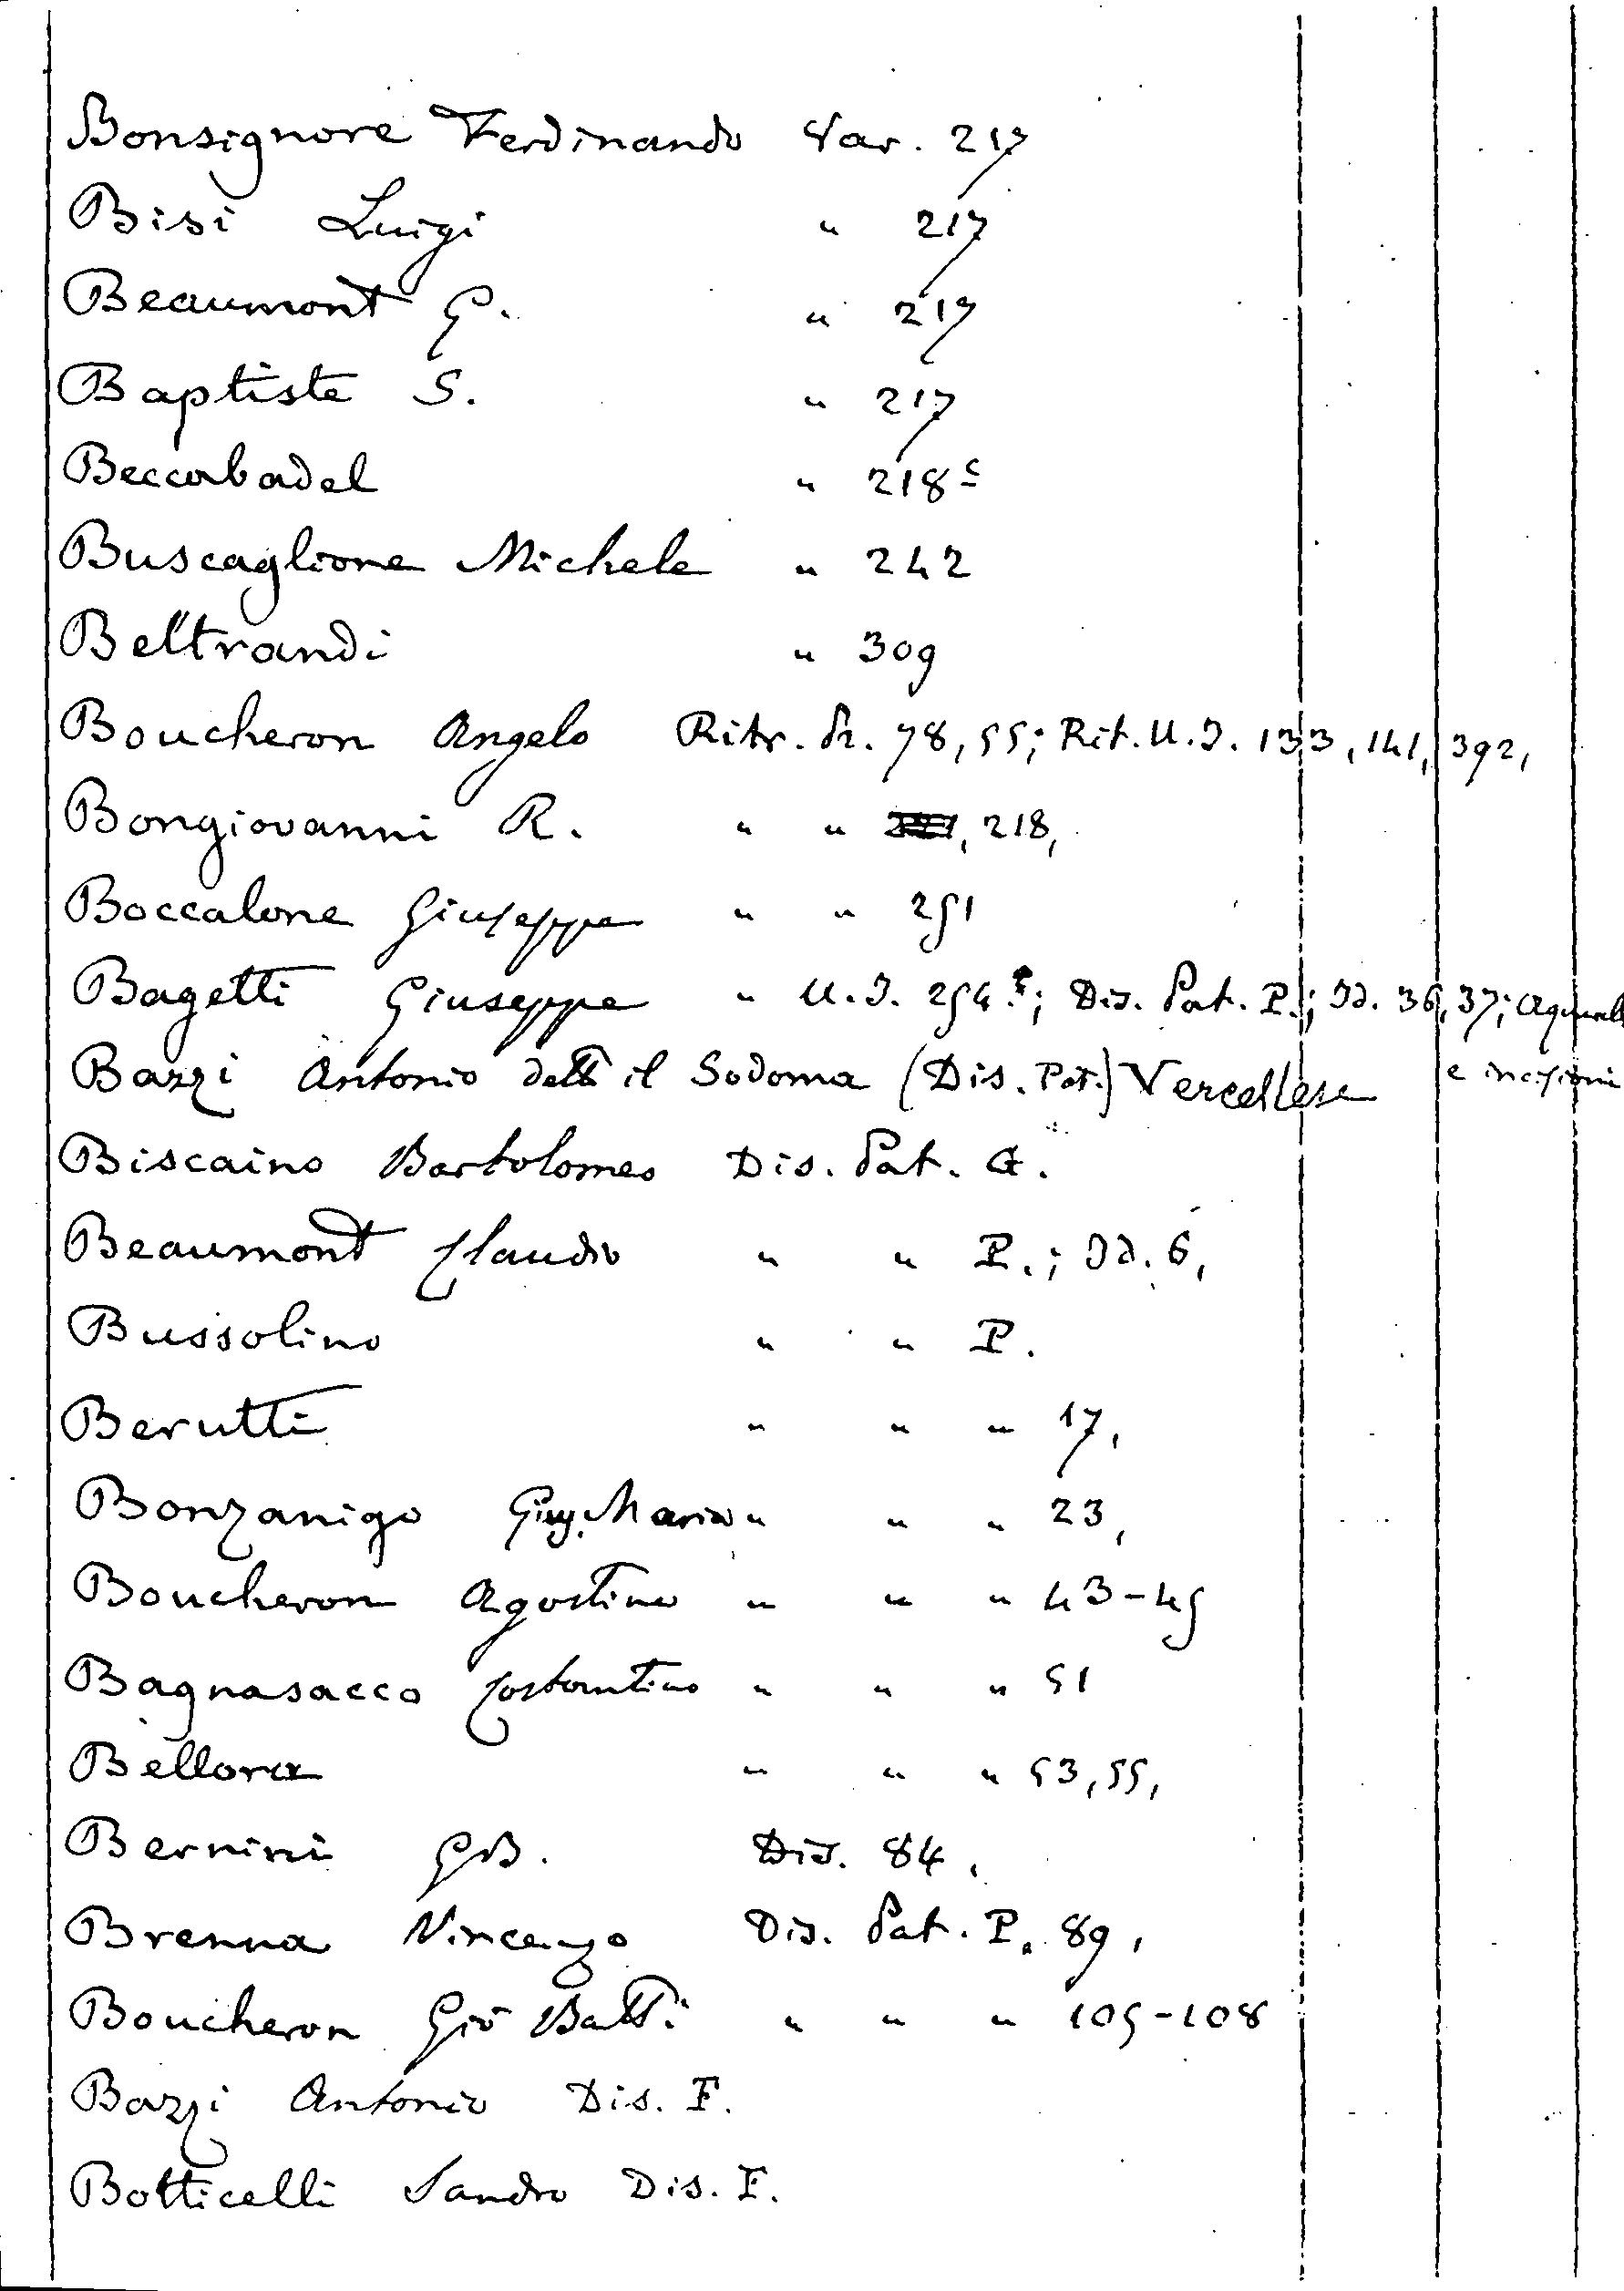 Bonsignore Ferdinando Var. 217
Bisi Luigi " 217
Beaumont G. " 217
Baptiste S. " 217
Beccabadel " 218c
Buscaglione Michele " 242
Beltrandi " 309
Boucheron Angelo Ritr. Pr. 78, 55; Rit. U.I. 133, 141, 392,
Bongiovanni R. " " , 218,
Boccalone Giuseppe " " 251
Bagetti Giuseppe " U.I. 254; Dis. Pat. P.; Id. 36, 37; Aquarelli
Bazzi Antonio detto il Sodoma (Dis. Pat.) Vercellese e incisioni
Biscaino Bartolomeo Dis. Pat. G.
Beaumont Claudio " " P.; Id. 6,
Bussolino " " P.
Berutti " " " 17,
Bonzanigo Gius. Maria " " " 23,
Boucheron Agostino " " " 43-45
Bagnasacco Costantino " " " 51
Bellora " " " 53, 55,
Bernini GB. Dis. 84,
Brenna Vincenzo Dis. Pat. P. 89,
Boucheron Gio Batt. " " " 105-108
Bazzi Antonio Dis. F.
Botticelli Sandro Dis. F.